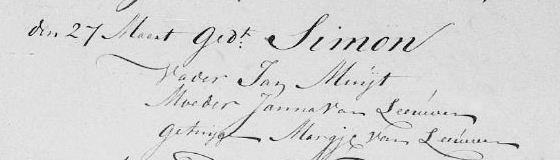 den 27 Maart gedt: Simon
Vader Jan Muijt
Moeder Janna van Leeúwen
getuige Margje van Leeúwen